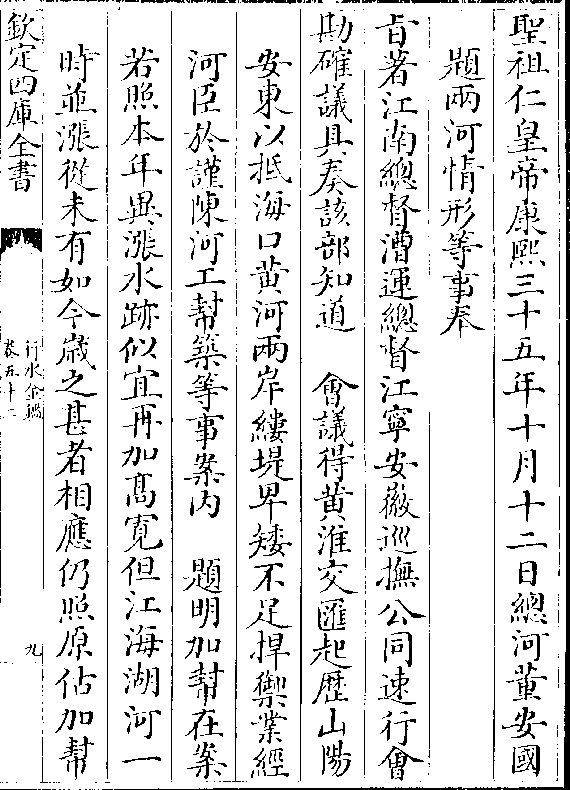 聖祖仁皇帝康熙三十五年十月十二日總河董安國
題兩河情形等事奉
旨著江南總督漕運總督江寧安徽巡撫公同速行會
勘確議具奏該部知道　會議得黄淮交匯起歴山陽
安東以抵海口黄河兩岸縷堤卑矮不足捍禦業經
河臣於謹陳河工幇築等事案内　題明加幇在案
若照本年異漲水跡似宜再加髙寛但江海湖河一
時並漲從未有如今歲之甚者相應仍照原估加幇
欽定四庫全書
行水金鑑
卷五十二
九